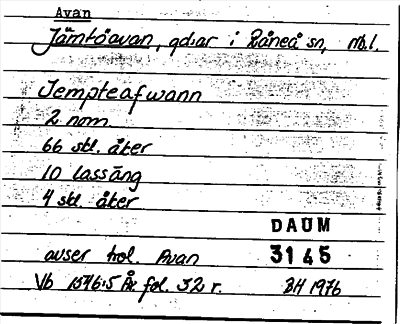 Avan
Jämtöavan, gd:ar i Råneå sn, Nb.l.
Jempteafwann
2 nom.
66 skl. åter
10 lassäng
4 skl. åter
DAUM
3145
avser trol. Avan
Vb 1546:5 År. fol. 32 r. BH 1976